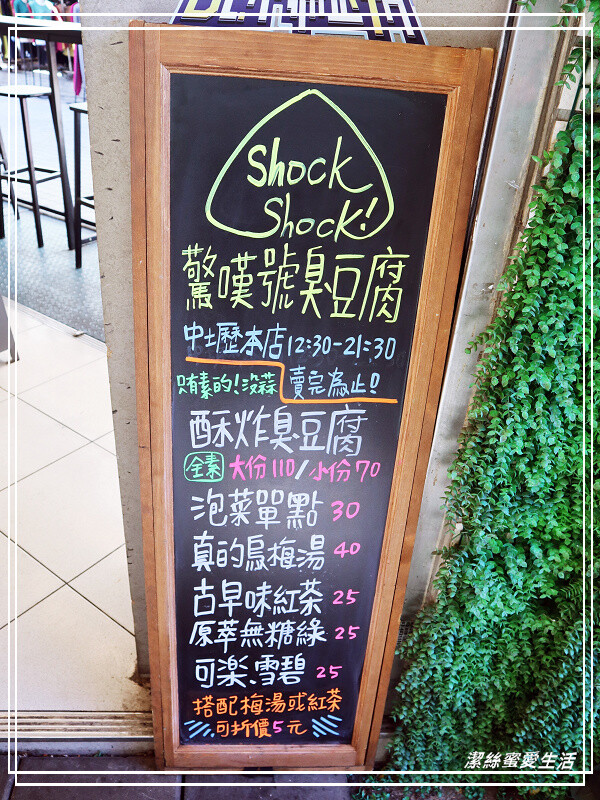 Shock
Shock!
驚嘆號臭豆腐
中壢本店12:30-21:30
只有素的!沒蒜
賣完為止!
酥炸臭豆腐
全素 大份110/小份70
泡菜單點 30
真的烏梅湯 40
古早味紅茶 25
原萃無糖綠 25
可樂、雪碧 25
搭配梅湯或紅茶
可折價5元
潔絲蜜愛生活